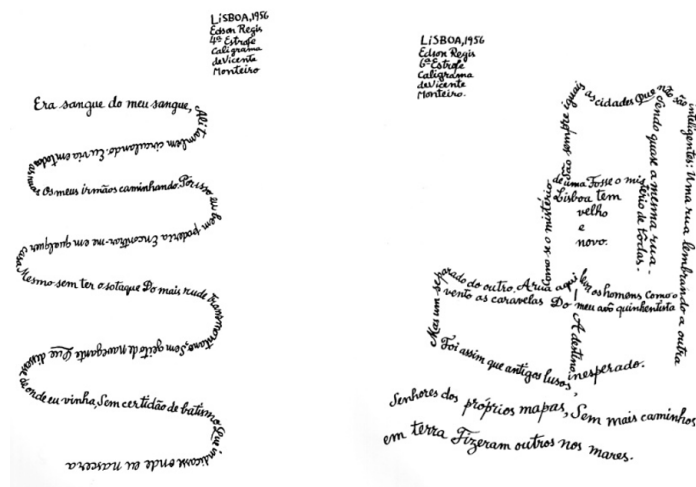 LISBOA, 1956
Edson Regis
4ª Estrofe
Caligrama
de Vicente
Monteiro
Era sangue do meu sangue,
Ali tambem circulando. Eu via em todas
as ruas
Os meus irmãos caminhando. Por isso eu bem
poderia Encontrar-me em qualquer casa
Mesmo sem ter o sotaque Do mais rude Transmontano,
Sem geito de navegante Que disesse
onde eu vinha, Sem certidão de batismo Que
indicasse onde eu nascera
LISBOA, 1956
Edson Regis
6ª Estrofe
Caligrama
de Vicente
Monteiro.
São sempre iguais as cidades Que não são inteligentes: Uma rua lembrando a outra
Sendo quase a mesma rua-
Como se o mistério de uma Fosse o mistério de tôdas.
Lisboa tem
velho
e
novo.
Mas um separado do outro. A rua aqui leva os homens Como o
vento as caravelas Do meu avô quinhentista
- A destino inesperado.
Foi assim que antigos lusos,
Senhores dos próprios mapas, Sem mais caminhos
em terra Fizeram outros nos mares.